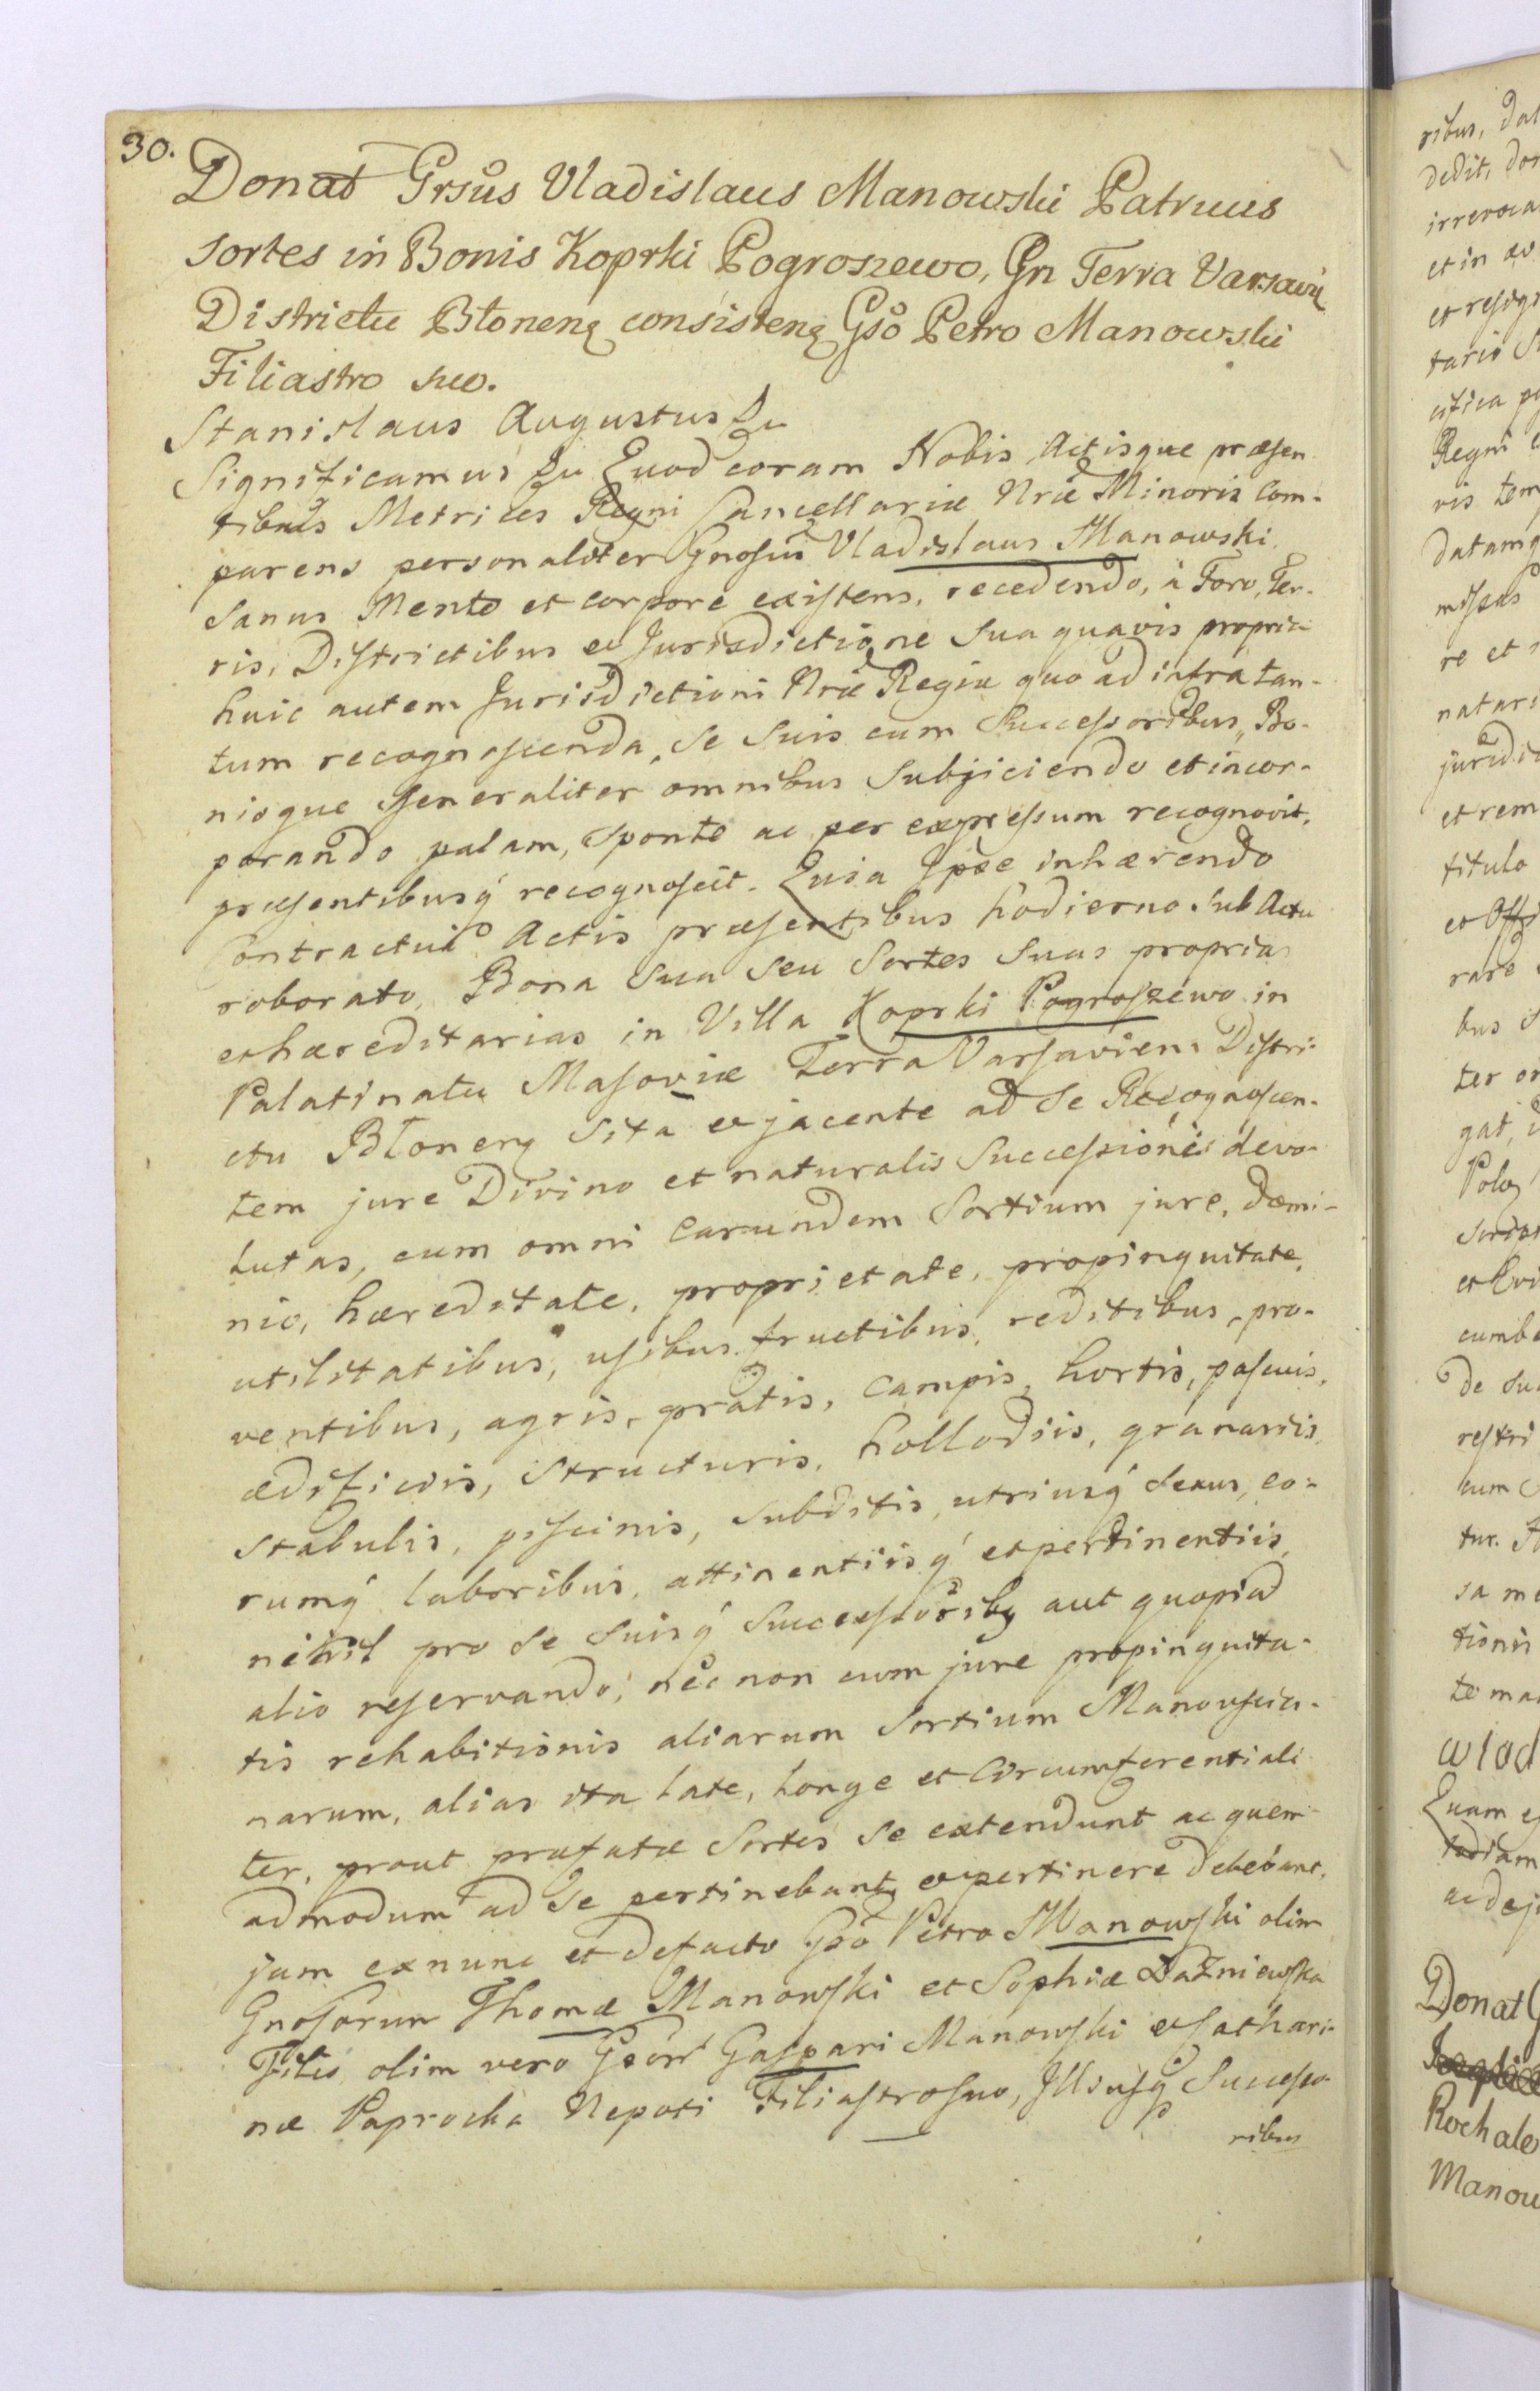 30.
Donat Grsus Vladislaus Manowski Patruus
sortes in Bonis Koprki Pogroszewo, Gn Terra Varsavi
Districtu Błonenȩ consistenȩ Gso Petro Manowski
Filiastro suo.
Stanislaus Augustus &c
Significamus &c Quod coram Nobis, Actisque præsen
tibus Metrices Regni Cancellariæ Nræ Minoris Com-
parens personaliter Gnosus Vladislaus Manowski,
Sanus Mente et corpore existens, recedendo, à Foro, Ter-
ris, Districtibus et Jurisdictione Sua quavis propria
huic autem Jurisdictioni Nræ Regiæ quo ad infra tan-
tum recognoscenda, Se Suis cum Successoribus, Bo-
nisque Generaliter omnibus Subjiciendo et incor-
porando palam, Sponte ac per expressum recognovit,
præsentibusq́ recognoscit. Quia Ipse inhærendo
Contractui Actis præsentibus hodierno Sub Actu
roborato, Bona Sua Seu Sortes Suas proprias
et hæreditarias in Villa Koprki Pogroszewo in
Palatinatu Masoviæ Terra Varsaviens Distri-
ctu Błonenȩ Sita et jacente ad Se Recognoscen-
tem jure Divino et naturalis Successionis devo-
lutas, cum omni earundem Sortium jure, domi-
nio, hæreditate, proprietate, propinquitate,
utilitatibus, usibus fructibus, reditibus, pro-
ventibus, agris, pratis, campis, hortis, pascuis,
ædificiis, structuris, hollodiis, granariis,
stabulis, piscinis, Subditis, utriusq́ Sexus, eo-
rumq́ laboribus, attinentiisq́ et pertinentiis,
nihil pro Se Suisq́ Successoribȝ aut quopiad
alio reservando, nec non cum jure propinquita-
tis rehabitionis aliarum Sortium Manoviscia-
narum, alias ita late, longe et Circumferentiali
ter, prout præfatæ Sortes Se extendunt ac quem-
admodum ad Se pertinebant, et pertinere debebant,
jam exnunc et defacto Gso Petro Manowski olim
Gnosorum Thomæ Manowski et Sophiæ Dażniewska
Filio, olim vero Gsorr Gaspari Manowski et Cathari-
næ Paprocka Nepoti Filiastro Suo, Illiusq́ Successo-
ribus
ribus, dat
dedit, don
irrevoca
et in
et resign
Regni
vis tem
datamq
re et
natari
juridic
et rem
titulo
rare
bus
ter
gat,
cumb
de su
restri
cum
tur.
sa me
tionis
te man
Quam
Donat
Rochale
Manow